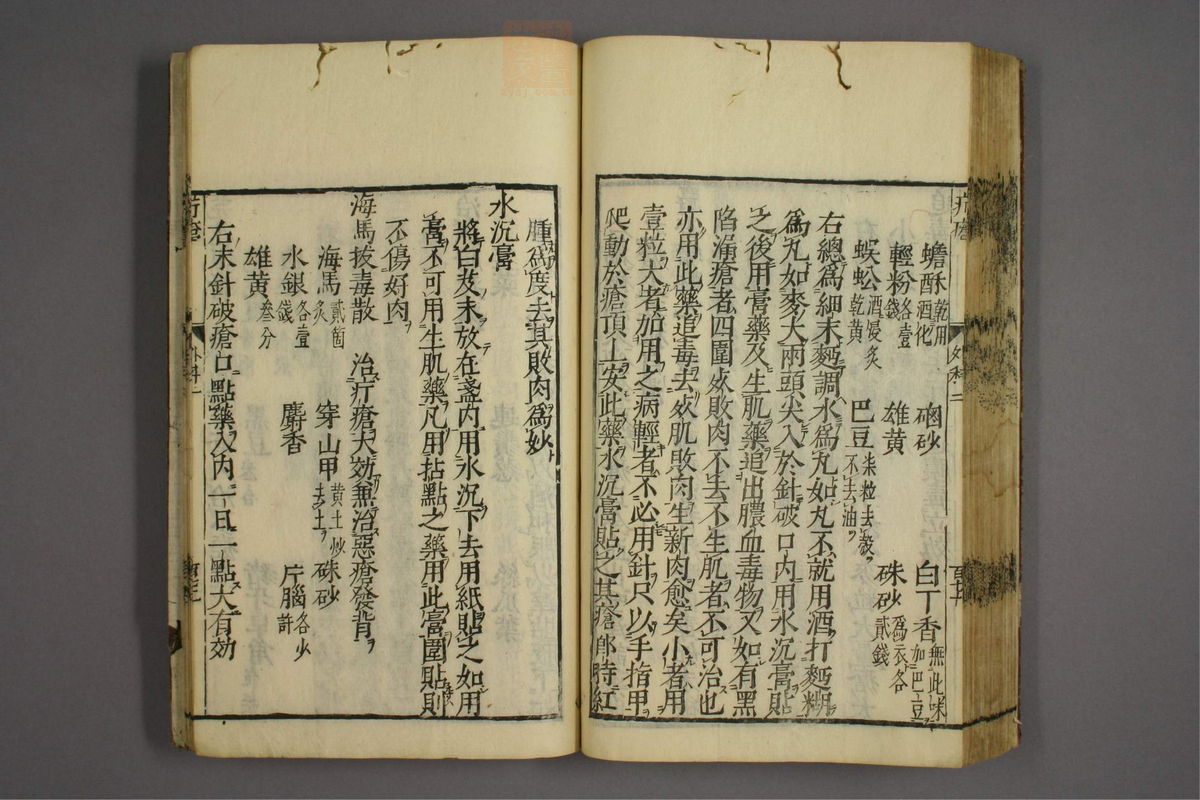 蟾酥 酒化乾用 硇砂 白丁香 無此味加巴豆
輕粉 各壹錢 雄黄 硃砂 為衣各貳錢
蜈蚣 酒浸炙乾黄 巴豆 柒粒去殼不去油
右總為細末麪調水為丸如丸不就用酒打麪糊
為丸如麥大兩頭尖入於針破口内用水沉膏貼
之後用膏藥及生肌藥追出膿血毒物又如有黑
陷漏瘡者四圍死敗肉不去不生肌者不可治也
亦用此藥追毒去死肌敗肉生新肉愈矣小者用
壹粒大者加用之病輕者不必用針只以手指甲
爬動於瘡頂上安此藥水沉膏貼之其瘡即時紅
腫為度去其敗肉為妙
水沉膏
將白芨末放在盞内用水沉下去用紙貼之如用
膏不可用生肌藥凡用拈點之藥用此膏圍貼則
不傷好肉
海馬拔毒散 治疔瘡大効無治惡瘡發背
海馬 貳箇炙 穿山甲 黄土炒去土 硃砂
水銀 各壹錢 麝香 片腦 各少許
雄黄 叁分
右末針破瘡口點藥入内一日一點大有効